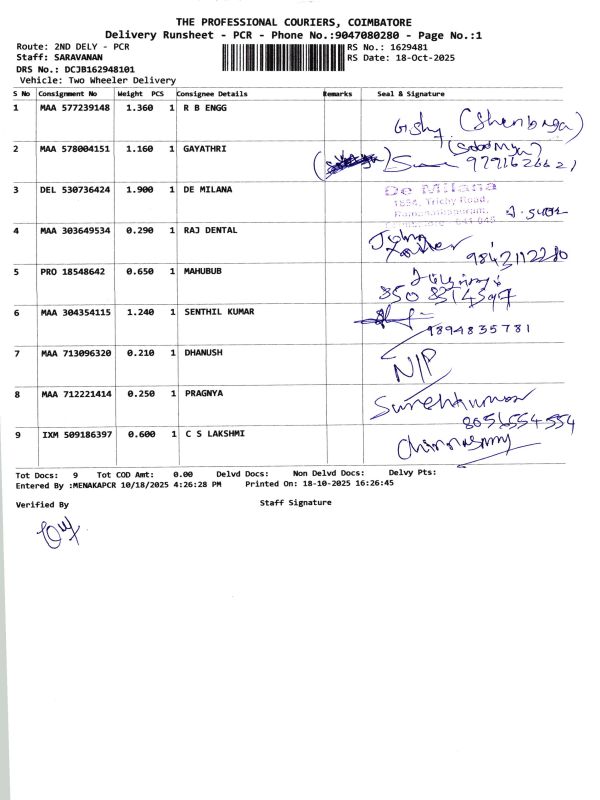 THE PROFESSIONAL COURIERS, COIMBATORE
Delivery Runsheet - PCR - Phone No.:9047080280 - Page No.:1
Route: 2ND DELY - PCR RS No.: 1629481
Staff: SARAVANAN RS Date: 18-Oct-2025
DRS No.: DCJB162948101
Vehicle: Two Wheeler Delivery
S No Consignment No Weight PCS Consignee Details Remarks Seal & Signature
1 MAA 577239148 1.360 1 R B ENGG
(Shenbaga)
2 MAA 578004151 1.160 1 GAYATHRI
9791626621
3 DEL 530736424 1.900 1 DE MILANA De Milana
1894, Trichy Road,
Ramanathapuram,
4 MAA 303649534 0.290 1 RAJ DENTAL John
9842112280
5 PRO 18548642 0.650 1 MAHUBUB
6 MAA 304354115 1.240 1 SENTHIL KUMAR
9894835781
7 MAA 713096320 0.210 1 DHANUSH N/P
8 MAA 712221414 0.250 1 PRAGNYA
8056554554
9 IXM 509186397 0.600 1 C S LAKSHMI Chinnasamy
Tot Docs: 9 Tot COD Amt: 0.00 Delvd Docs: Non Delvd Docs: Delvy Pts:
Entered By :MENAKAPCR 10/18/2025 4:26:28 PM Printed On: 18-10-2025 16:26:45
Verified By Staff Signature